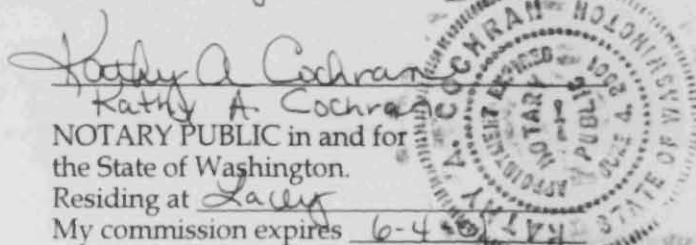 Kathy A Cochran
Kathy A. Cochran
NOTARY PUBLIC in and for
the State of Washington.
Residing at Lacey
My commission expires 6-4-
KATHY A. COCHRAN
STATE OF WASHINGTON
APPOINTMENT EXPIRES
JUNE 4, 2001
NOTARY
PUBLIC